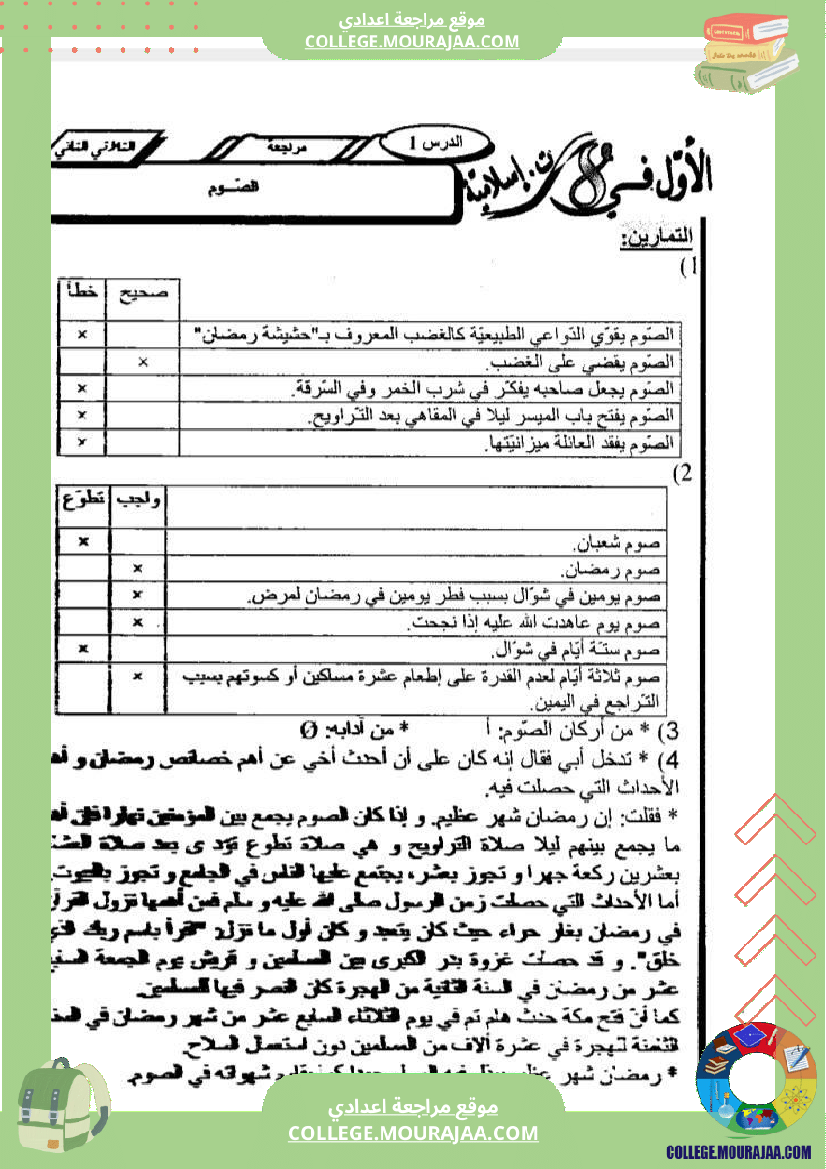 موقع مراجعة اعدادي
COLLEGE.MOURAJAA.COM
الأوّل في 8 ت. إسلامية
الدرس 1
مراجعة
الثلاثي الثاني
الصّوم
التمارين:
1)
صحيح خطأ
الصّوم يقوّي الدّواعي الطبيعيّة كالغضب المعروف بـ"حشيشة رمضان" ×
الصّوم يقضي على الغضب. ×
الصّوم يجعل صاحبه يفكّر في شرب الخمر وفي السّرقة. ×
الصّوم يفتح باب الميسر ليلا في المقاهي بعد التّراويح. ×
الصّوم يفقد العائلة ميزانيّتها. ×
2)
واجب تطوّع
صوم شعبان. ×
صوم رمضان. ×
صوم يومين في شوّال بسبب فطر يومين في رمضان لمرض. ×
صوم يوم عاهدت الله عليه إذا نجحت. ×
صوم ستّة أيّام في شوّال. ×
صوم ثلاثة أيّام لعدم القدرة على إطعام عشرة مساكين أو كسوتهم بسبب ×
التّراجع في اليمين.
3) * من أركان الصّوم: أ * من آدابه: Ø
4) * تدخل أبي فقال إنه كان على أن أحدث أخي عن أهم خصائص رمضان و
الأحداث التي حصلت فيه.
* فقلت: إن رمضان شهر عظيم. و إذا كان الصوم يجمع بين المؤمنين نهارا فإن
ما يجمع بينهم ليلا صلاة التراويح و هي صلاة تطوع تؤدى بعد صلاة
بعشرين ركعة جهرا و تجوز بعشر، يجتمع عليها الناس في الجامع و تجوز بالبيوت.
أما الأحداث التي حصلت زمن الرسول صلى الله عليه و سلم فمن أهمها نزول القرآن
في رمضان بغار حراء حيث كان يتعبد و كان أول ما نزل: "اقرأ باسم ربك الذي
خلق". و قد حصلت غزوة بدر الكبرى بين المسلمين و قريش يوم الجمعة
عشر من رمضان في السنة الثانية من الهجرة كان النصر فيها للمسلمين.
كما أنّ فتح مكة حدث هام تم في يوم الثلاثاء السابع عشر من شهر رمضان في
الثامنة للهجرة في عشرة آلاف من المسلمين دون استعمال السلاح.
* رمضان شهر شهواته في الصوم.
موقع مراجعة اعدادي
COLLEGE.MOURAJAA.COM
COLLEGE.MOURAJAA.COM